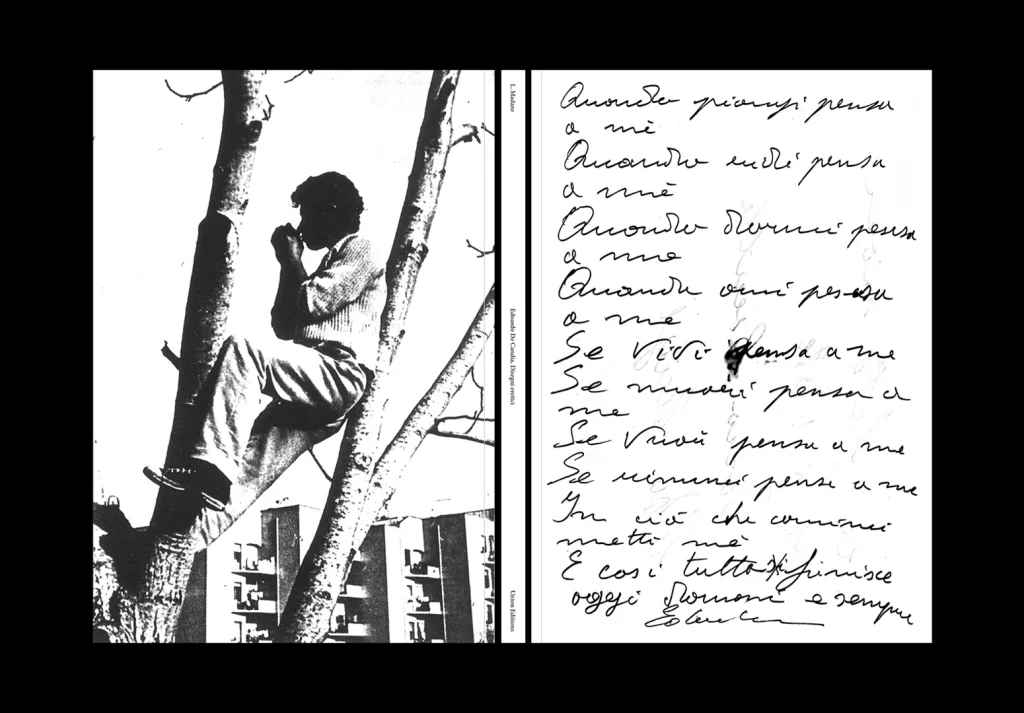 L. Madaro
Edoardo De Candia, Disegni erotici
Union Editions
Quando piangi pensa
a mè
Quando ridi pensa
a mè
Quando dormi pensa
a me
Quando ami pensa
a me
Se Vivi pensa a me
Se muori pensa a
me
Se Vuoi pensa a me
Se rimani pensa a me
In ciò che cominci
metti mè
E così tutto finisce
oggi domani e sempre